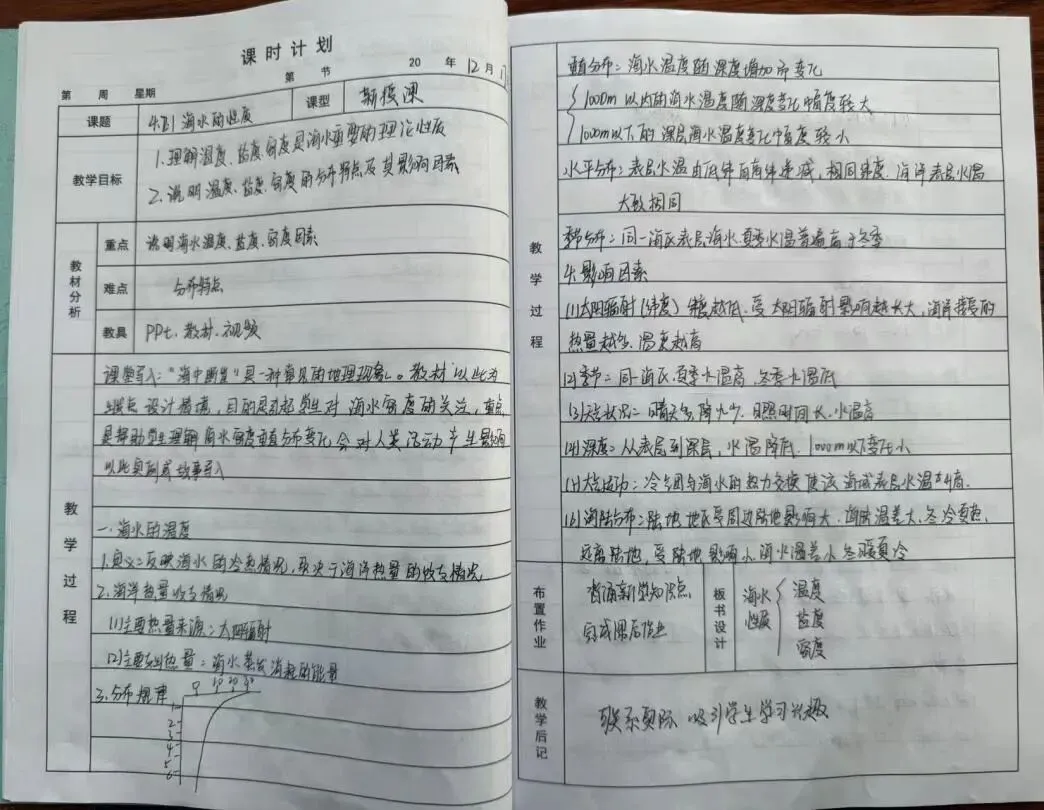 课时计划
第 节 20 年 12月1
第 周 星期
课题 4.2.1 海水的性质 课型 新授课
教学目标
1.理解温度、盐度、密度是海水重要的理论性质
2.说明温度、盐度、密度的分布特点及其影响因素
教材分析
重点 说明海水温度、盐度、密度因素
难点 分布特点
教具 PPt、教材、视频
教学过程
课堂导入:"海中断崖"是一种常见的地理现象。教材以此为
设计情境,目的是引起学生对海水密度的关注,重点
是帮助学生理解海水密度垂直分布变化会对人类活动产生影响
以此实例或故事导入
一.海水的温度
1.定义:反映海水的冷热情况,取决于海洋热量的收支情况
2.海洋热量收支情况
(1)主要热量来源:太阳辐射
(2)主要支出热量:海水蒸发消耗的能量
3.分布规律
0 10 20 30
1
2
3
4
5
6
教学过程
垂直分布:海水温度随深度增加而变化
1000m以内的海水温度随深度变化幅度较大
1000m以下的深层海水温度变化幅度较小
水平分布:表层水温由低纬向高纬递减,相同纬度,海洋表层水温
大致相同
季节分布:同一海区表层海水夏季水温普遍高于冬季
4.影响因素
(1)太阳辐射(纬度)纬度越低、受太阳辐射影响越大,海洋接受的
热量越多、温度越高
(2)季节:同一海区,夏季水温高,冬季水温低
(3)天气状况:晴天多,降水少,日照时间长,水温高
(4)深度:从表层到深层,水温降低,1000m以下变化小
(5)大气运动:冷气团与海水的热力交换使该海域表层水温
(6)海陆分布:陆地地区受周边陆地影响大,海水温差大,冬冷夏热,
远离陆地,受陆地影响小,海水温差小冬暖夏冷
布置作业
背诵新学知识点
完成课后作业
板书设计
海水性质
温度
盐度
密度
教学后记
联系实际 吸引学生学习兴趣